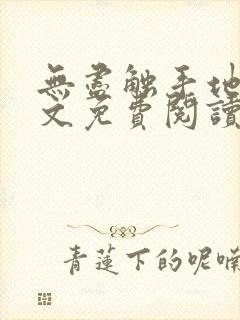 無盡触手地
文免費閱讀
青蓮下的呢喃